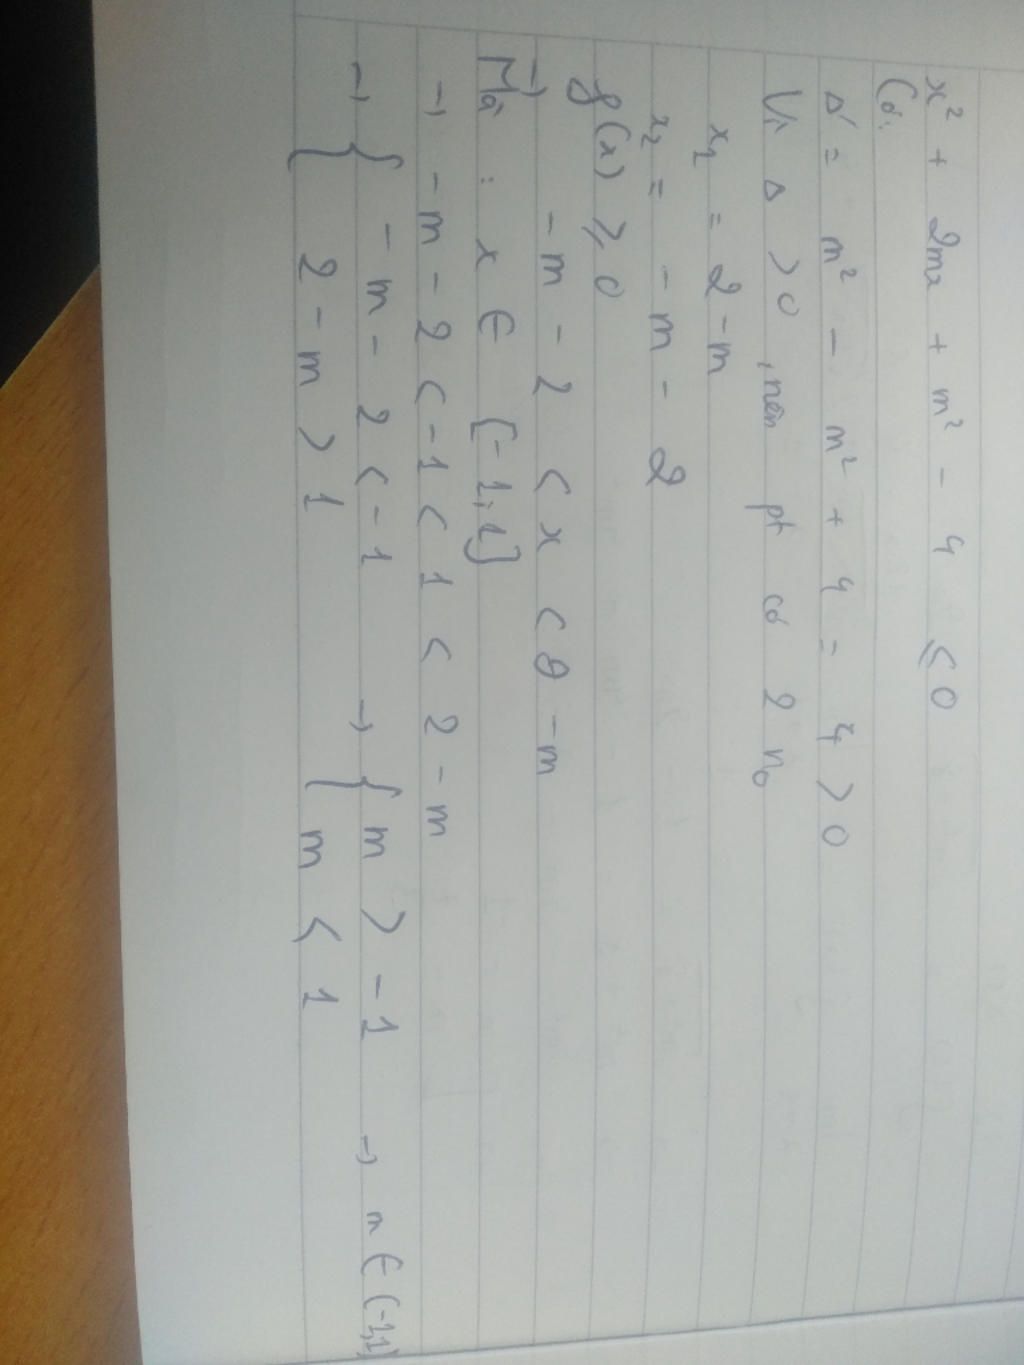 x² + 2mx + m² - 4 ≤ 0
Có:
Δ' = m² - m² + 4 = 4 > 0
Vì Δ > 0, nên pt có 2 n₀
x₁ = 2 - m
x₂ = - m - 2
f(x) ≥ 0
→ - m - 2 < x < 2 - m
Mà : x ∈ [-1, 1]
→ - m - 2 < -1 < 1 < 2 - m
→ { - m - 2 < -1 → { m > -1 → m ∈ (-1, 1)
{ 2 - m > 1 { m < 1